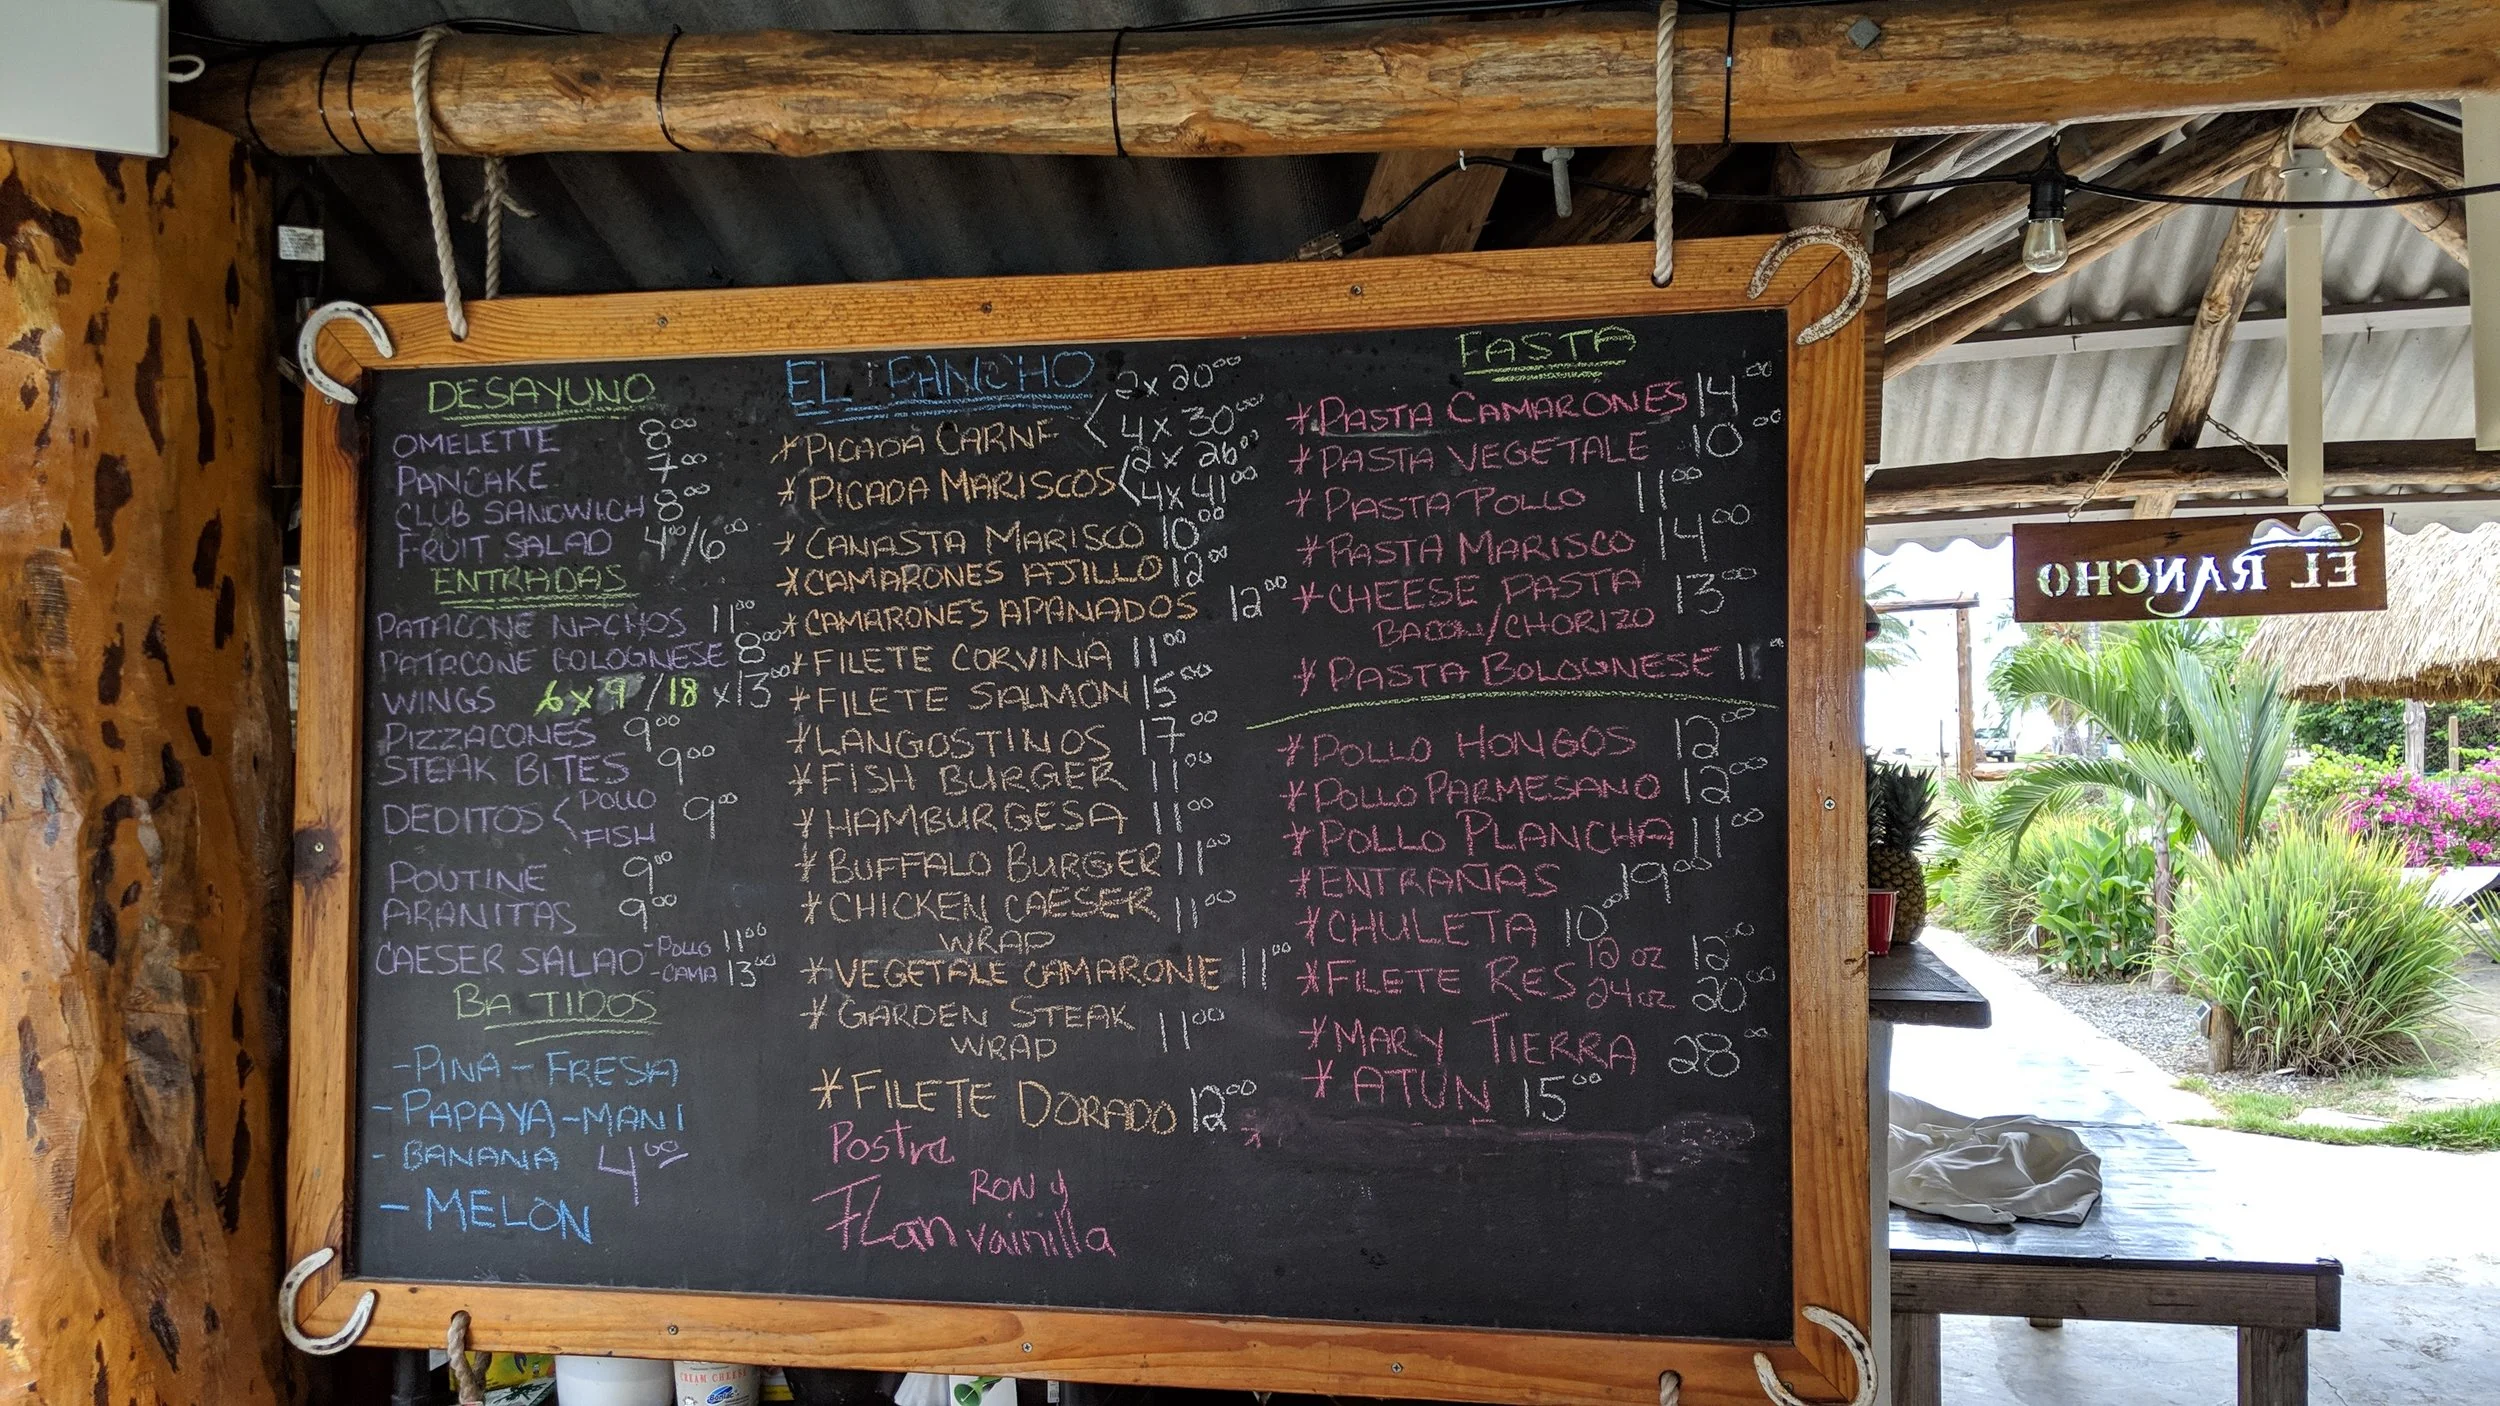 DESAYUNO
OMELETTE 8.00
PANCAKE 7.00
CLUB SANDWICH 8.00
FRUIT SALAD 4.00/6.00
ENTRADAS
PATACONE NACHOS 11.00
PATACONE BOLOGNESE 8.00
WINGS 6 x 9 / 18 x 13.00
PIZZACONES 9.00
STEAK BITES 9.00
DEDITOS < POLLO 9.00
FISH
POUTINE 9.00
ARANITAS 9.00
CAESER SALAD - POLLO 11.00
- CAMA 13.00
BATIDOS
- PINA - FRESA
- PAPAYA - MANI
- BANANA 4.00
- MELON
EL RANCHO
* PICADA CARNE < 2 x 20.00
4 x 30.00
* PICADA MARISCOS < 2 x 26.00
4 x 41.00
* CANASTA MARISCO 10.00
* CAMARONES AJILLO 12.00
* CAMARONES APANADOS 12.00
* FILETE CORVINA 11.00
* FILETE SALMON 15.00
* LANGOSTINOS 17.00
* FISH BURGER 11.00
* HAMBURGESA 11.00
* BUFFALO BURGER 11.00
* CHICKEN CAESER 11.00
WRAP
* VEGETALE CAMARONE 11.00
* GARDEN STEAK 11.00
WRAP
* FILETE DORADO 12.00
Postre
Flan RON y
vainilla
PASTA
* PASTA CAMARONES 14.00
* PASTA VEGETALE 10.00
* PASTA POLLO 11.00
* PASTA MARISCO 14.00
* CHEESE PASTA 13.00
BACON/CHORIZO
* PASTA BOLOGNESE
* POLLO HONGOS 12.00
* POLLO PARMESANO 12.00
* POLLO PLANCHA 11.00
* ENTRAÑAS 19.00
* CHULETA 10.00
* FILETE RES 12 oz 12.00
24 oz 20.00
* MARY TIERRA 28.00
* ATUN 15.00
EL RANCHO
CREAM CHEESE